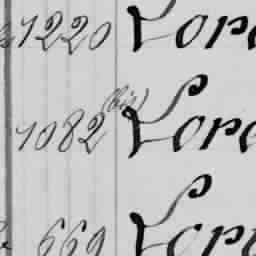 1220 Lord
1082 (bis) Lord
669 Lord